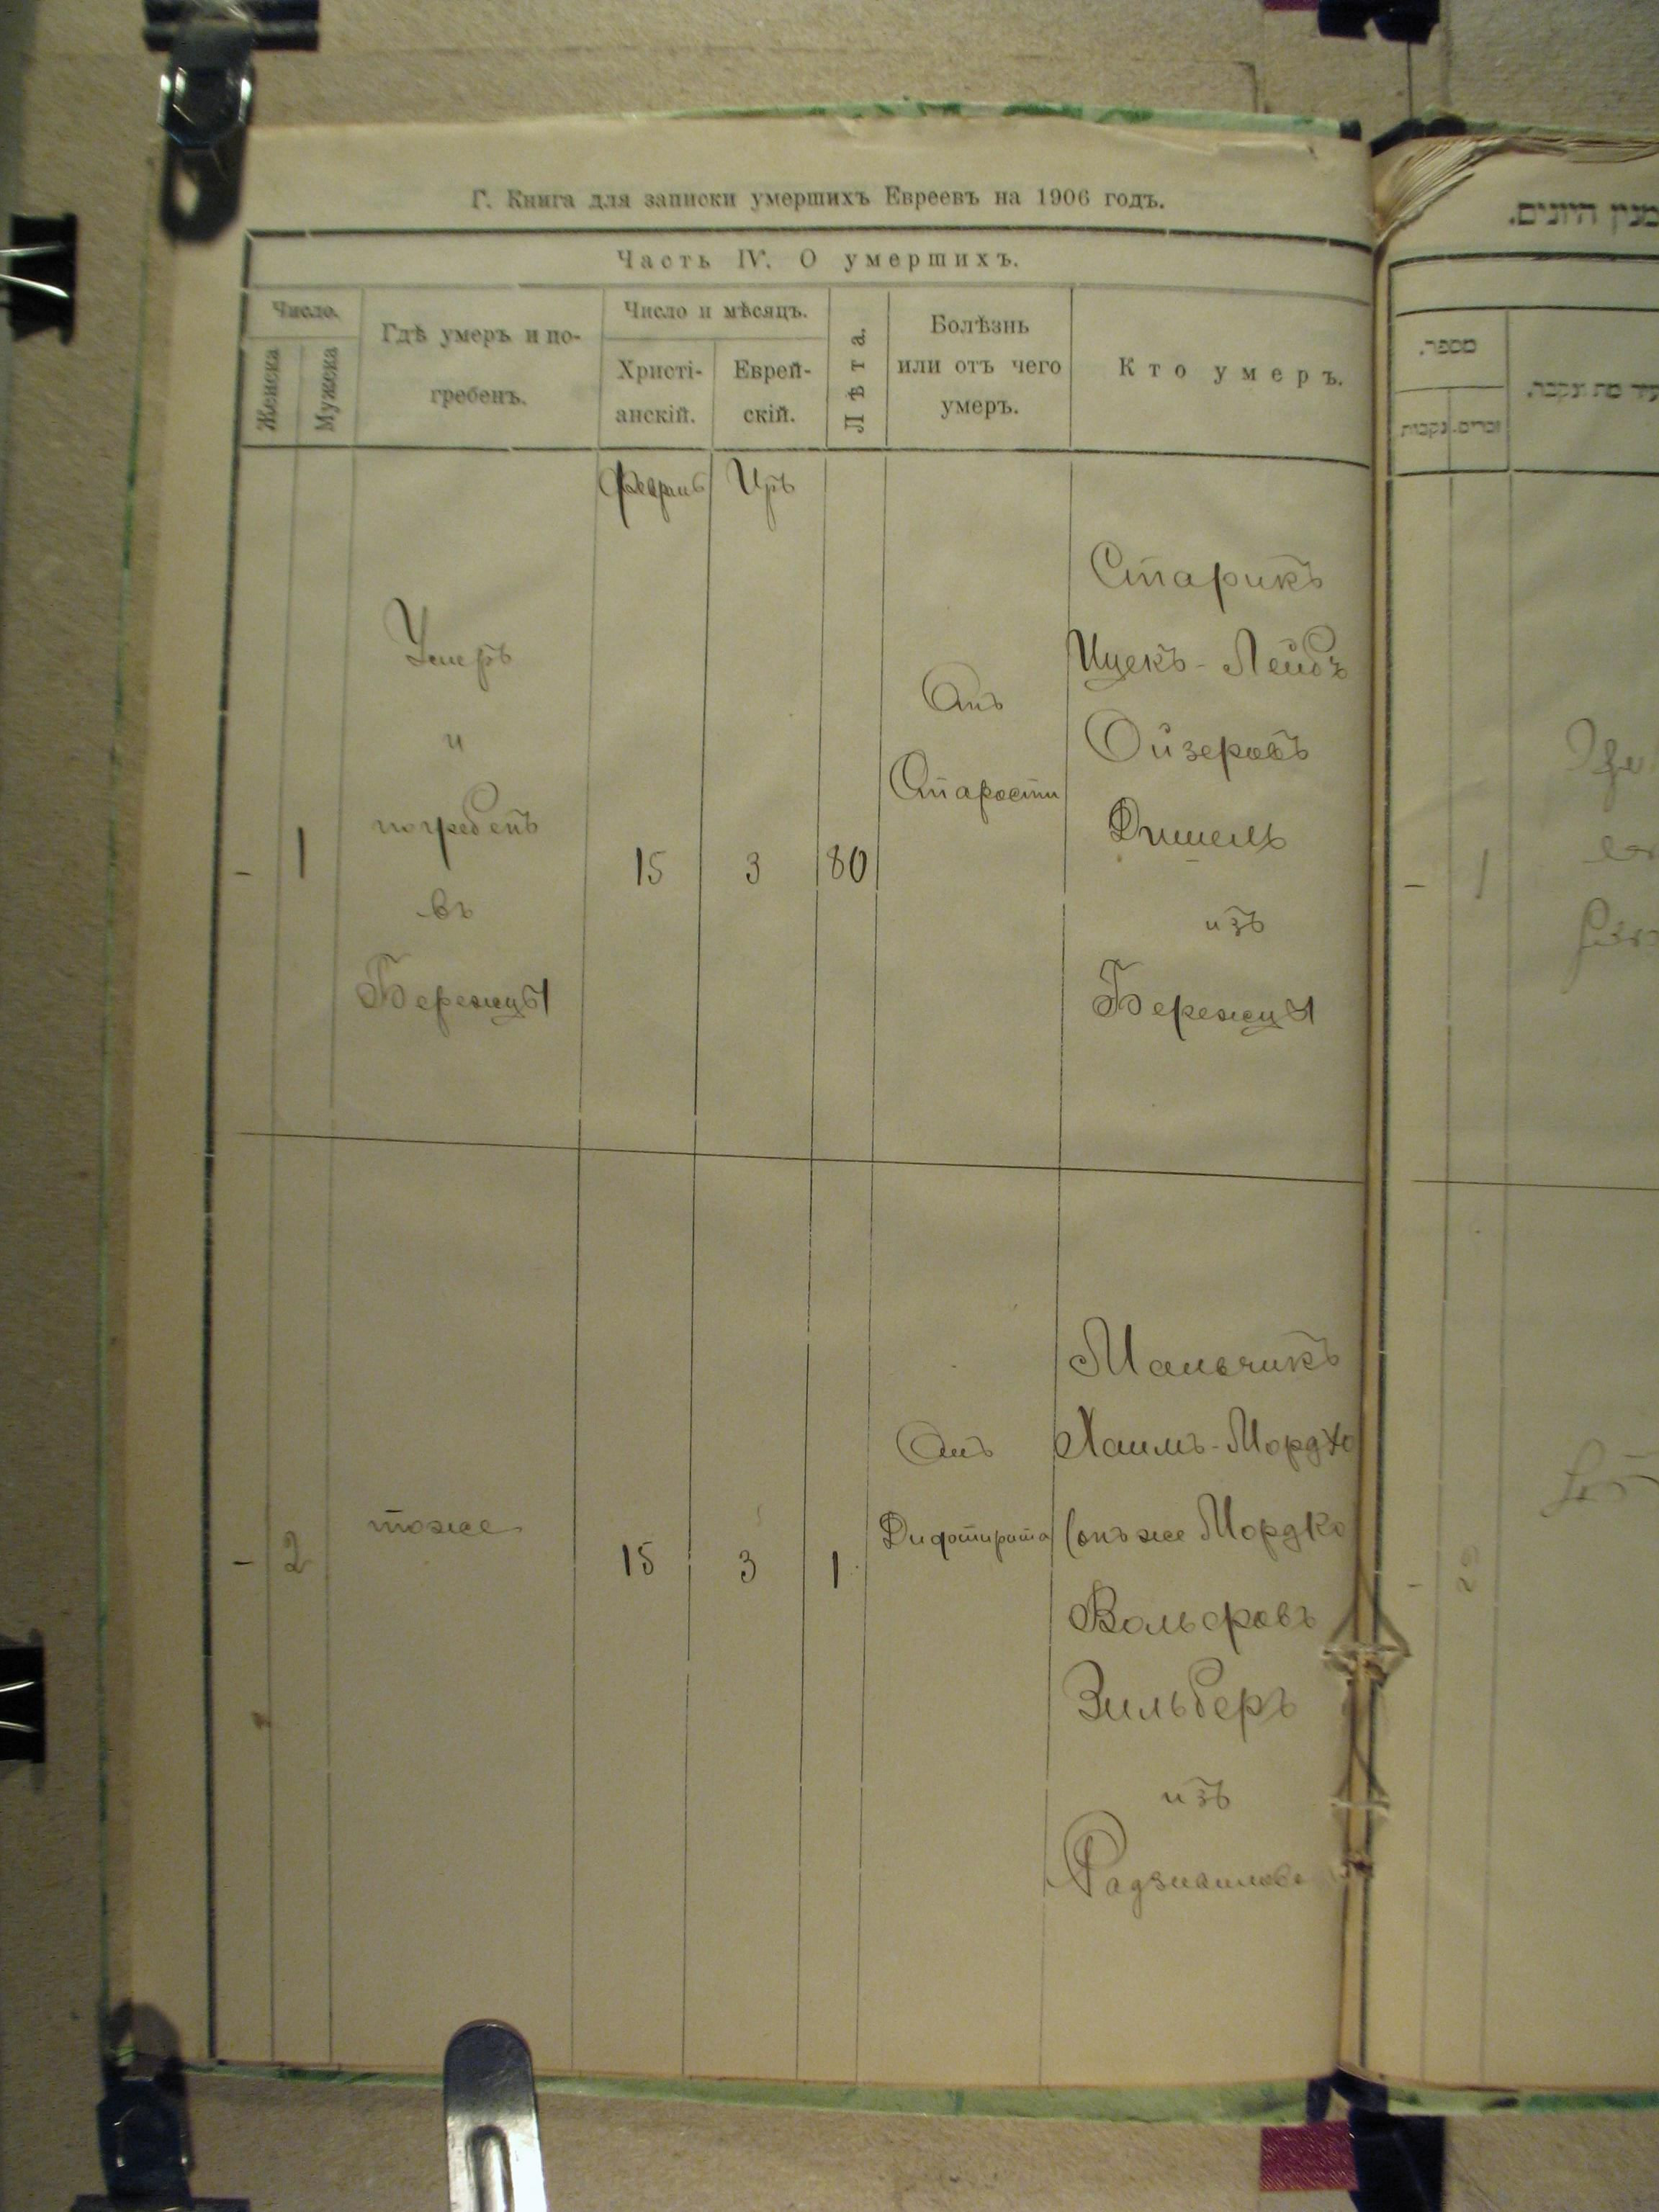 Г. Книга для записки умершихъ Евреевъ на 1906 годъ.
Часть IV. О умершихъ.
Число.
Женска
Мужеска
Гдѣ умеръ и по-
гребенъ.
Число и мѣсяцъ.
Христі-
анскій.
Еврей-
скій.
Лѣта.
Болѣзнь
или отъ чего
умеръ.
Кто умеръ.
Умеръ
и
погребенъ
въ
Бережцы
- 1
15
3
80
Отъ
Старости
Старикъ
Ицекъ-Лейбъ
Ойзеровъ
изъ
Бережцы
- 2
тоже
15
3
1
Отъ
Дифтирита
Мальчикъ
Хаимъ-Мордко
(онъ же Мордко
Вольфовъ
Зильберъ
изъ
מספר.
זכרים.
נקבות
- 1
- 2